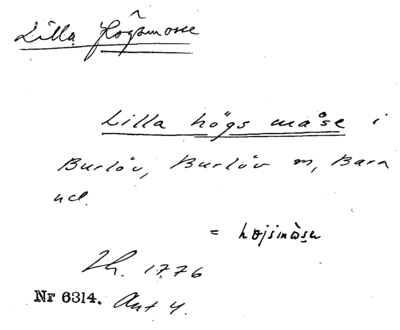 Lilla Högsmosse
Lilla högs måse i
Burlöv, Burlöv sn, Bara
hd.
= højsmòsen
Lh. 1776
Nr 6314. Akt 4.